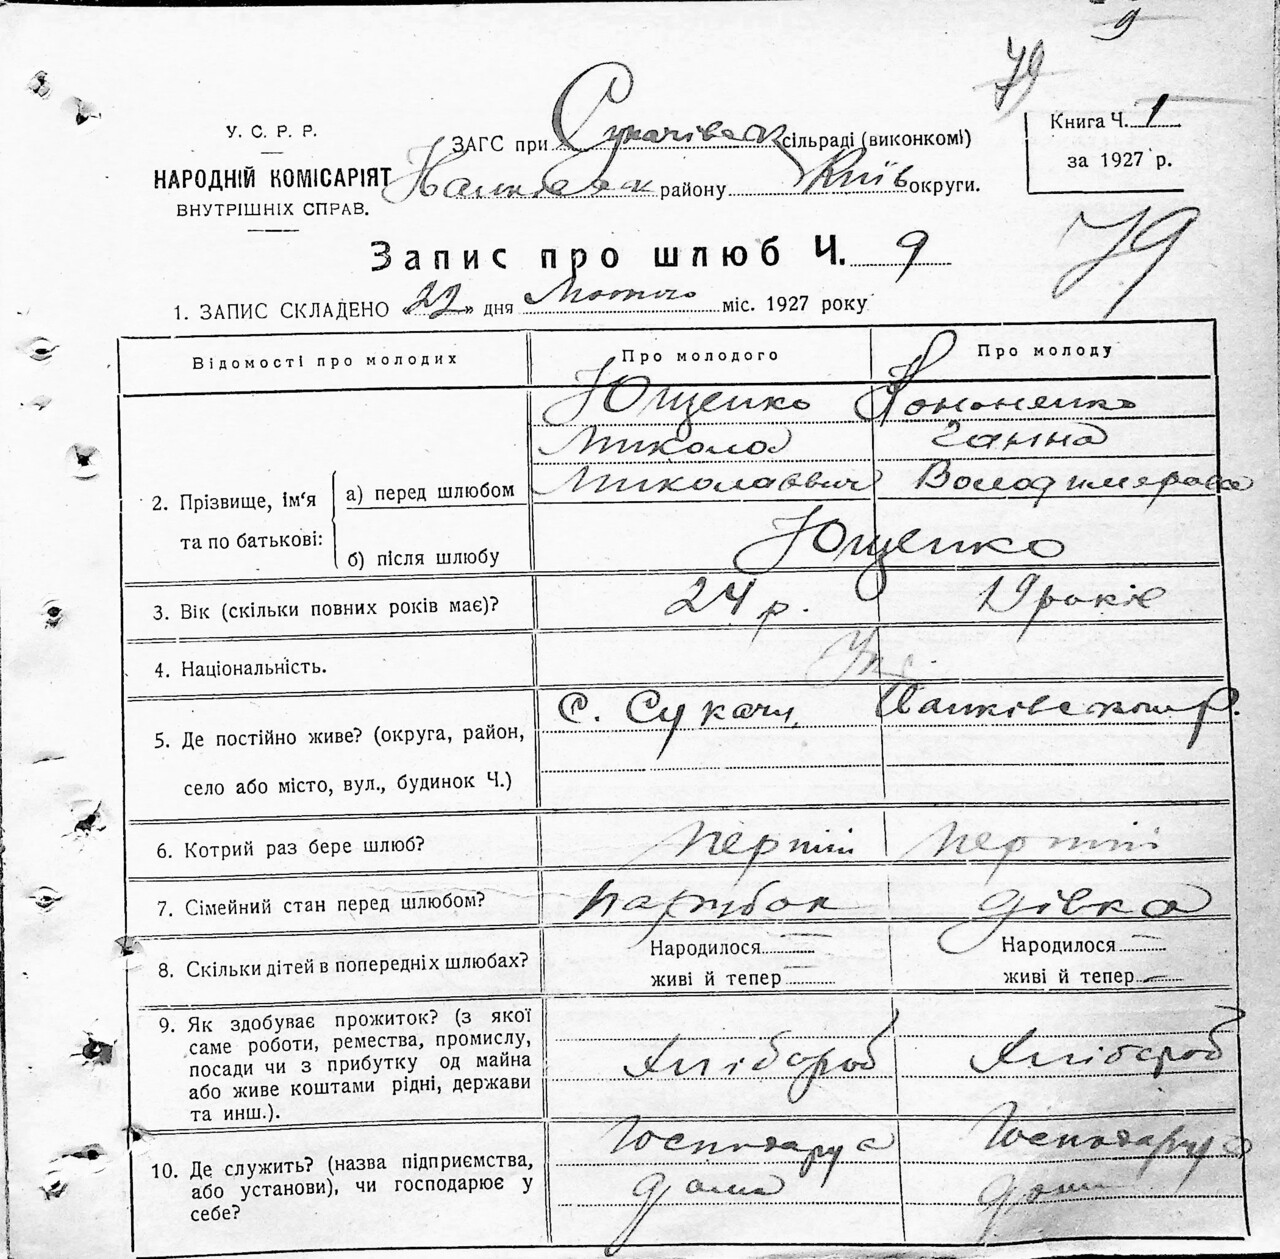 9
79
У. С. Р. Р.
НАРОДНІЙ КОМІСАРІЯТ
ВНУТРІШНІХ СПРАВ.
ЗАГС при Сукачівськ сільраді (виконкомі)
району Київ округи.
Книга Ч. 1
за 1927 р.
79
Запис про шлюб Ч. 9
1. ЗАПИС СКЛАДЕНО «22» дня Лютого міс. 1927 року
Відомості про молодих
Про молодого
Про молоду
2. Прізвище, ім'я та по батькові:
а) перед шлюбом
Ющенко
Микола
Миколаєвич
Кононенко
Ганна
Володимеровна
б) після шлюбу
Ющенко
3. Вік (скільки повних років має)?
24 р.
19 років
4. Національність.
Укр.
5. Де постійно живе? (округа, район,
село або місто, вул., будинок Ч.)
С. Сукачи, р.
6. Котрий раз бере шлюб?
перший
перший
7. Сімейний стан перед шлюбом?
парубок
дівка
8. Скільки дітей в попередніх шлюбах?
Народилося —
живі й тепер —
Народилося —
живі й тепер —
9. Як здобуває прожиток? (з якої
саме роботи, ремества, промислу,
посади чи з прибутку од майна
або живе коштами рідні, держави
та инш.).
Хлібороб
Хлібороб
10. Де служить? (назва підприємства,
або установи), чи господарює у
себе?
Господарує
дома
Господарує
дома